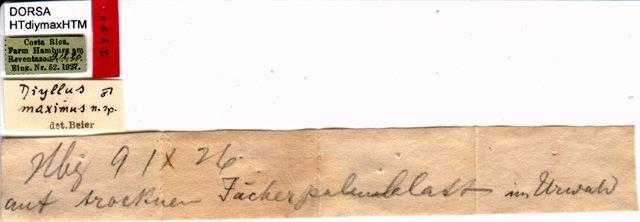 DORSA
HTdiymaxHTM
Type.
Costa Rica.
Farm Hamburg am
Reventazon
Eing. Nr. 52. 1927.
Diyllus ♂
maximus n. sp.
det. Beier
Hbg 9 IX 26
auf trocknem Fächerpalmblatt im Urwald